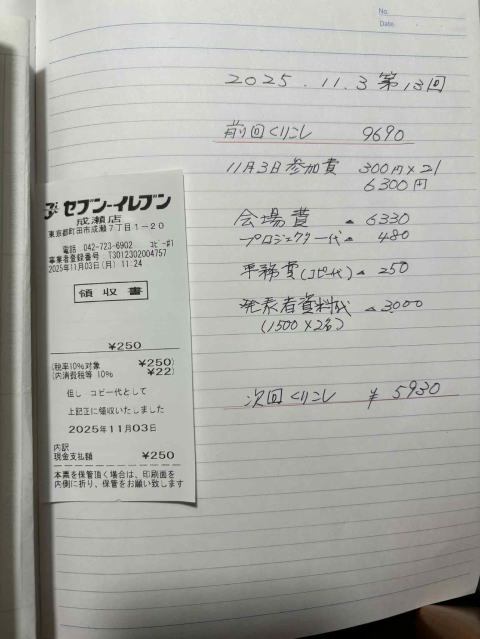 No.
Date
2025.11.3 第13回
前回くりこし 9690
11月3日参加費 300円×21
6300円
会場費 ▲ 6330
プロジェクター代 ▲ 480
事務費(コピー代) ▲ 250
発表者資料代 ▲ 3000
(1500×2名)
次回くりこし ¥ 5930
セブン-イレブン
成瀬店
東京都町田市成瀬7丁目1-20
電話 042-723-6902 コピー#1
事業者登録番号 T3012302004757
2025年11月03日(月) 11:24
領収書
¥250
(税率10%対象 ¥250)
(内消費税等 10% ¥22)
但し コピー代として
上記正に領収いたしました
2025年11月03日
内訳
現金支払額 ¥250
本票を保管頂く場合は、印刷面を
内側に折り、保管をお願い致します